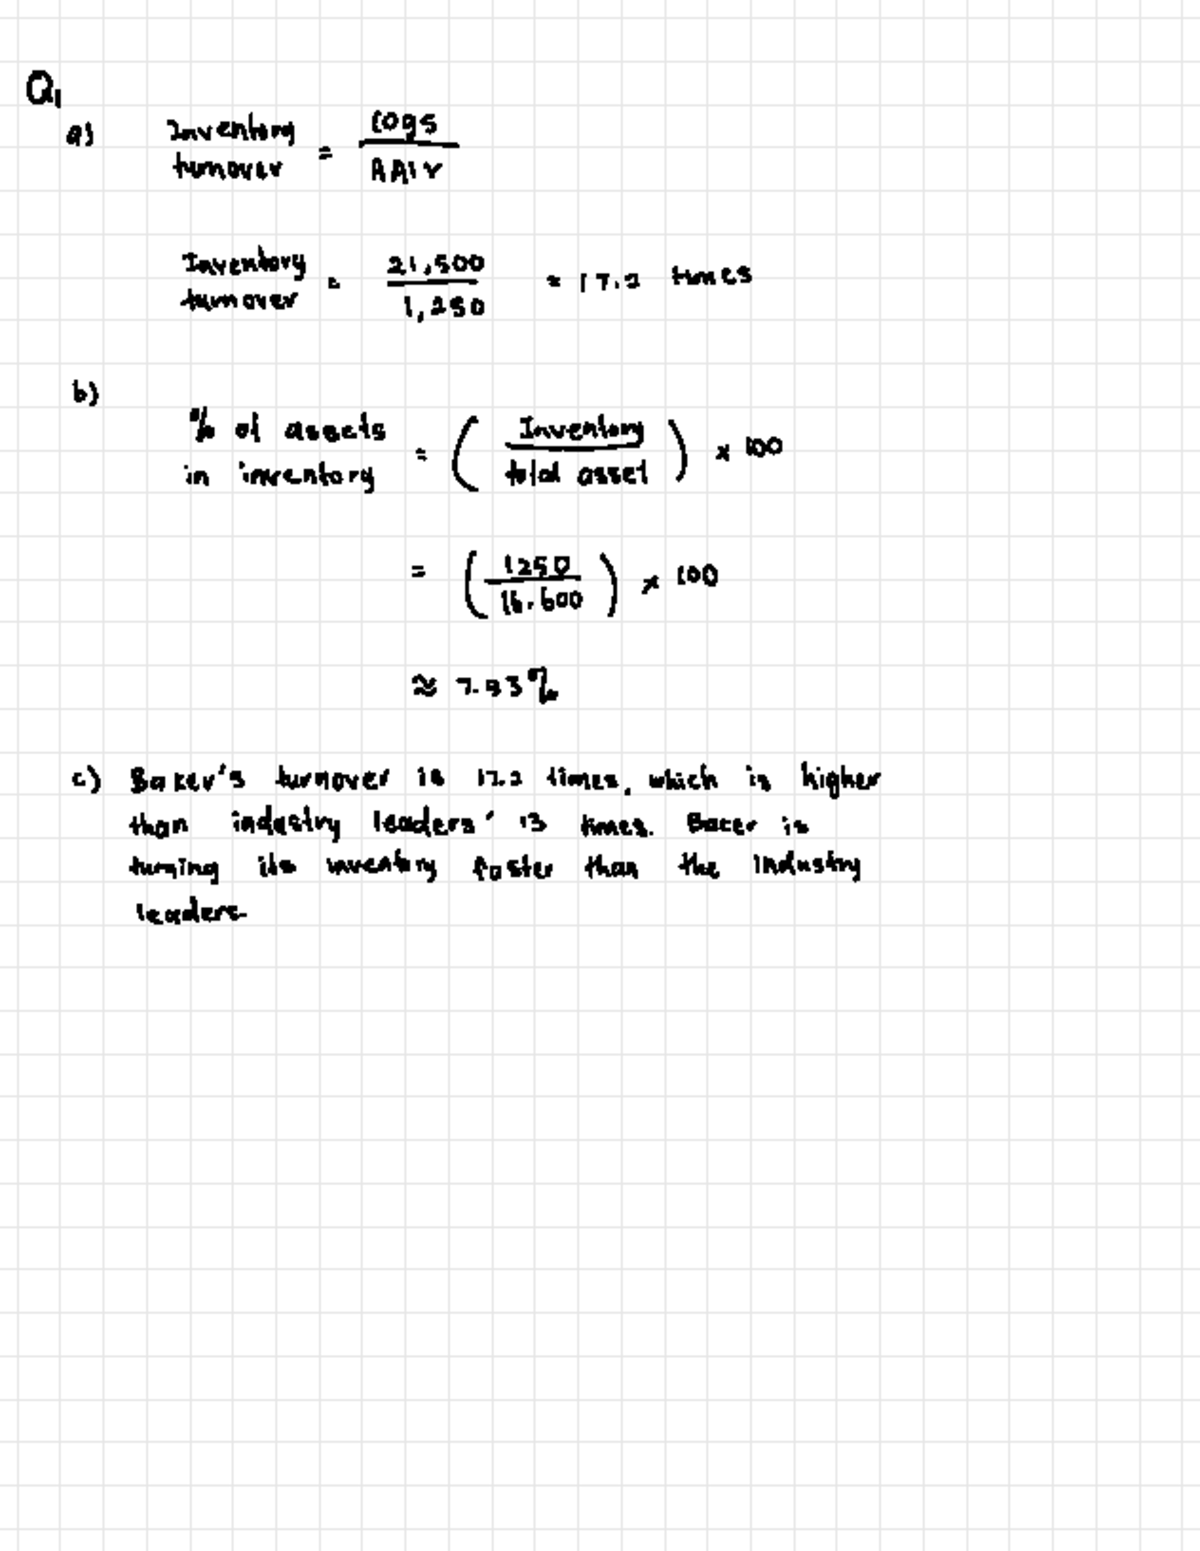 Q1
a) Inventory turnover = COGS / AAIV
Inventory turnover = 21,500 / 1,250 = 17.2 times
b)
% of assets in inventory = ( Inventory / total asset ) × 100
= ( 1250 / 16,600 ) × 100
≈ 7.53%
c) Baker's turnover is 17.2 times, which is higher
than industry leaders' 13 times. Bacer is
turning its inventory faster than the industry
leaders.